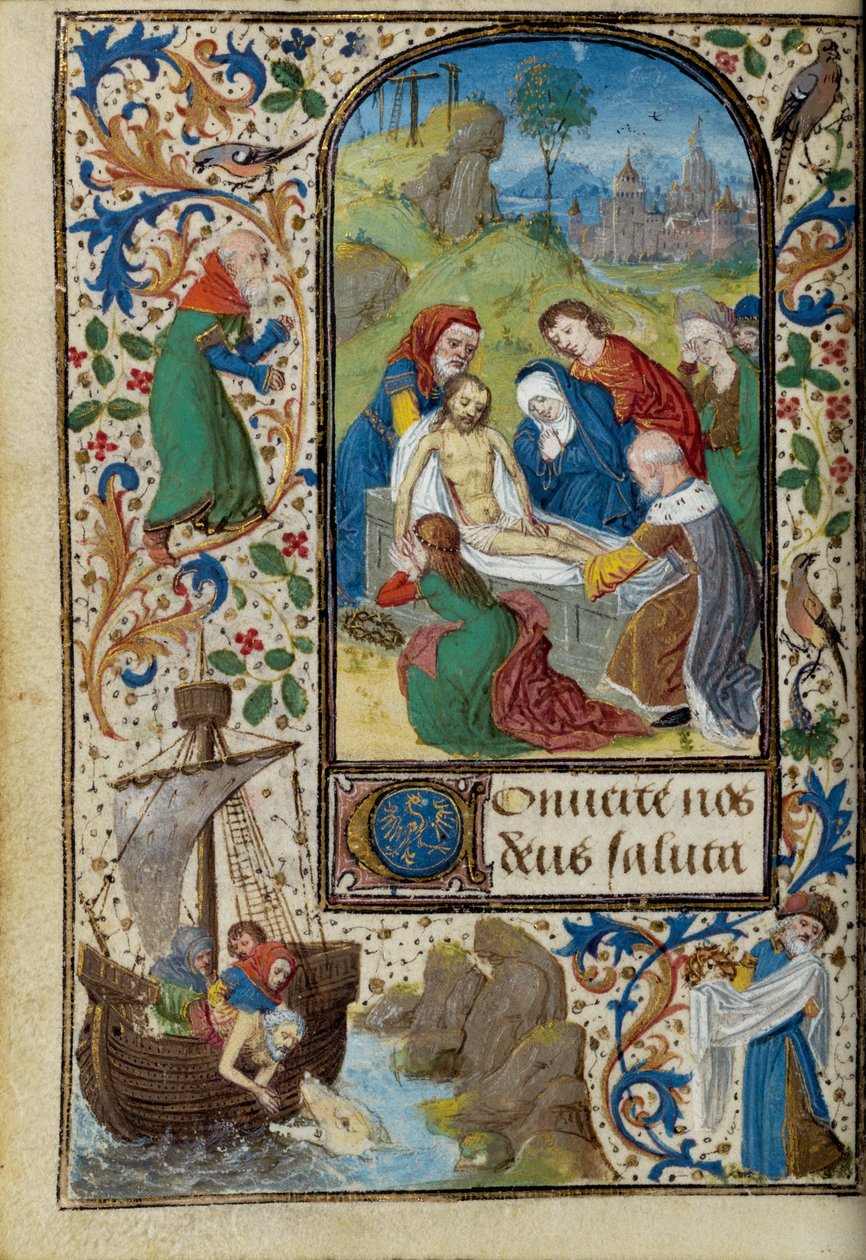 COnuerte nos
deus saluta